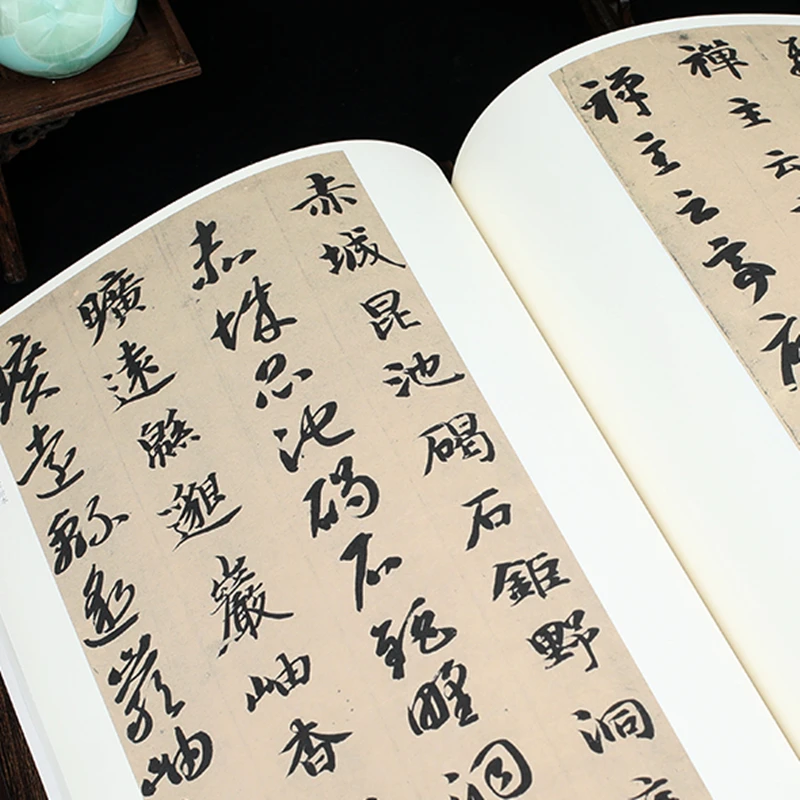 禪主云
禪主云亭
赤城昆池碣石鉅野洞
赤城昆池碣石鉅野洞
曠遠緜邈巖岫杳
曠遠緜邈巖岫